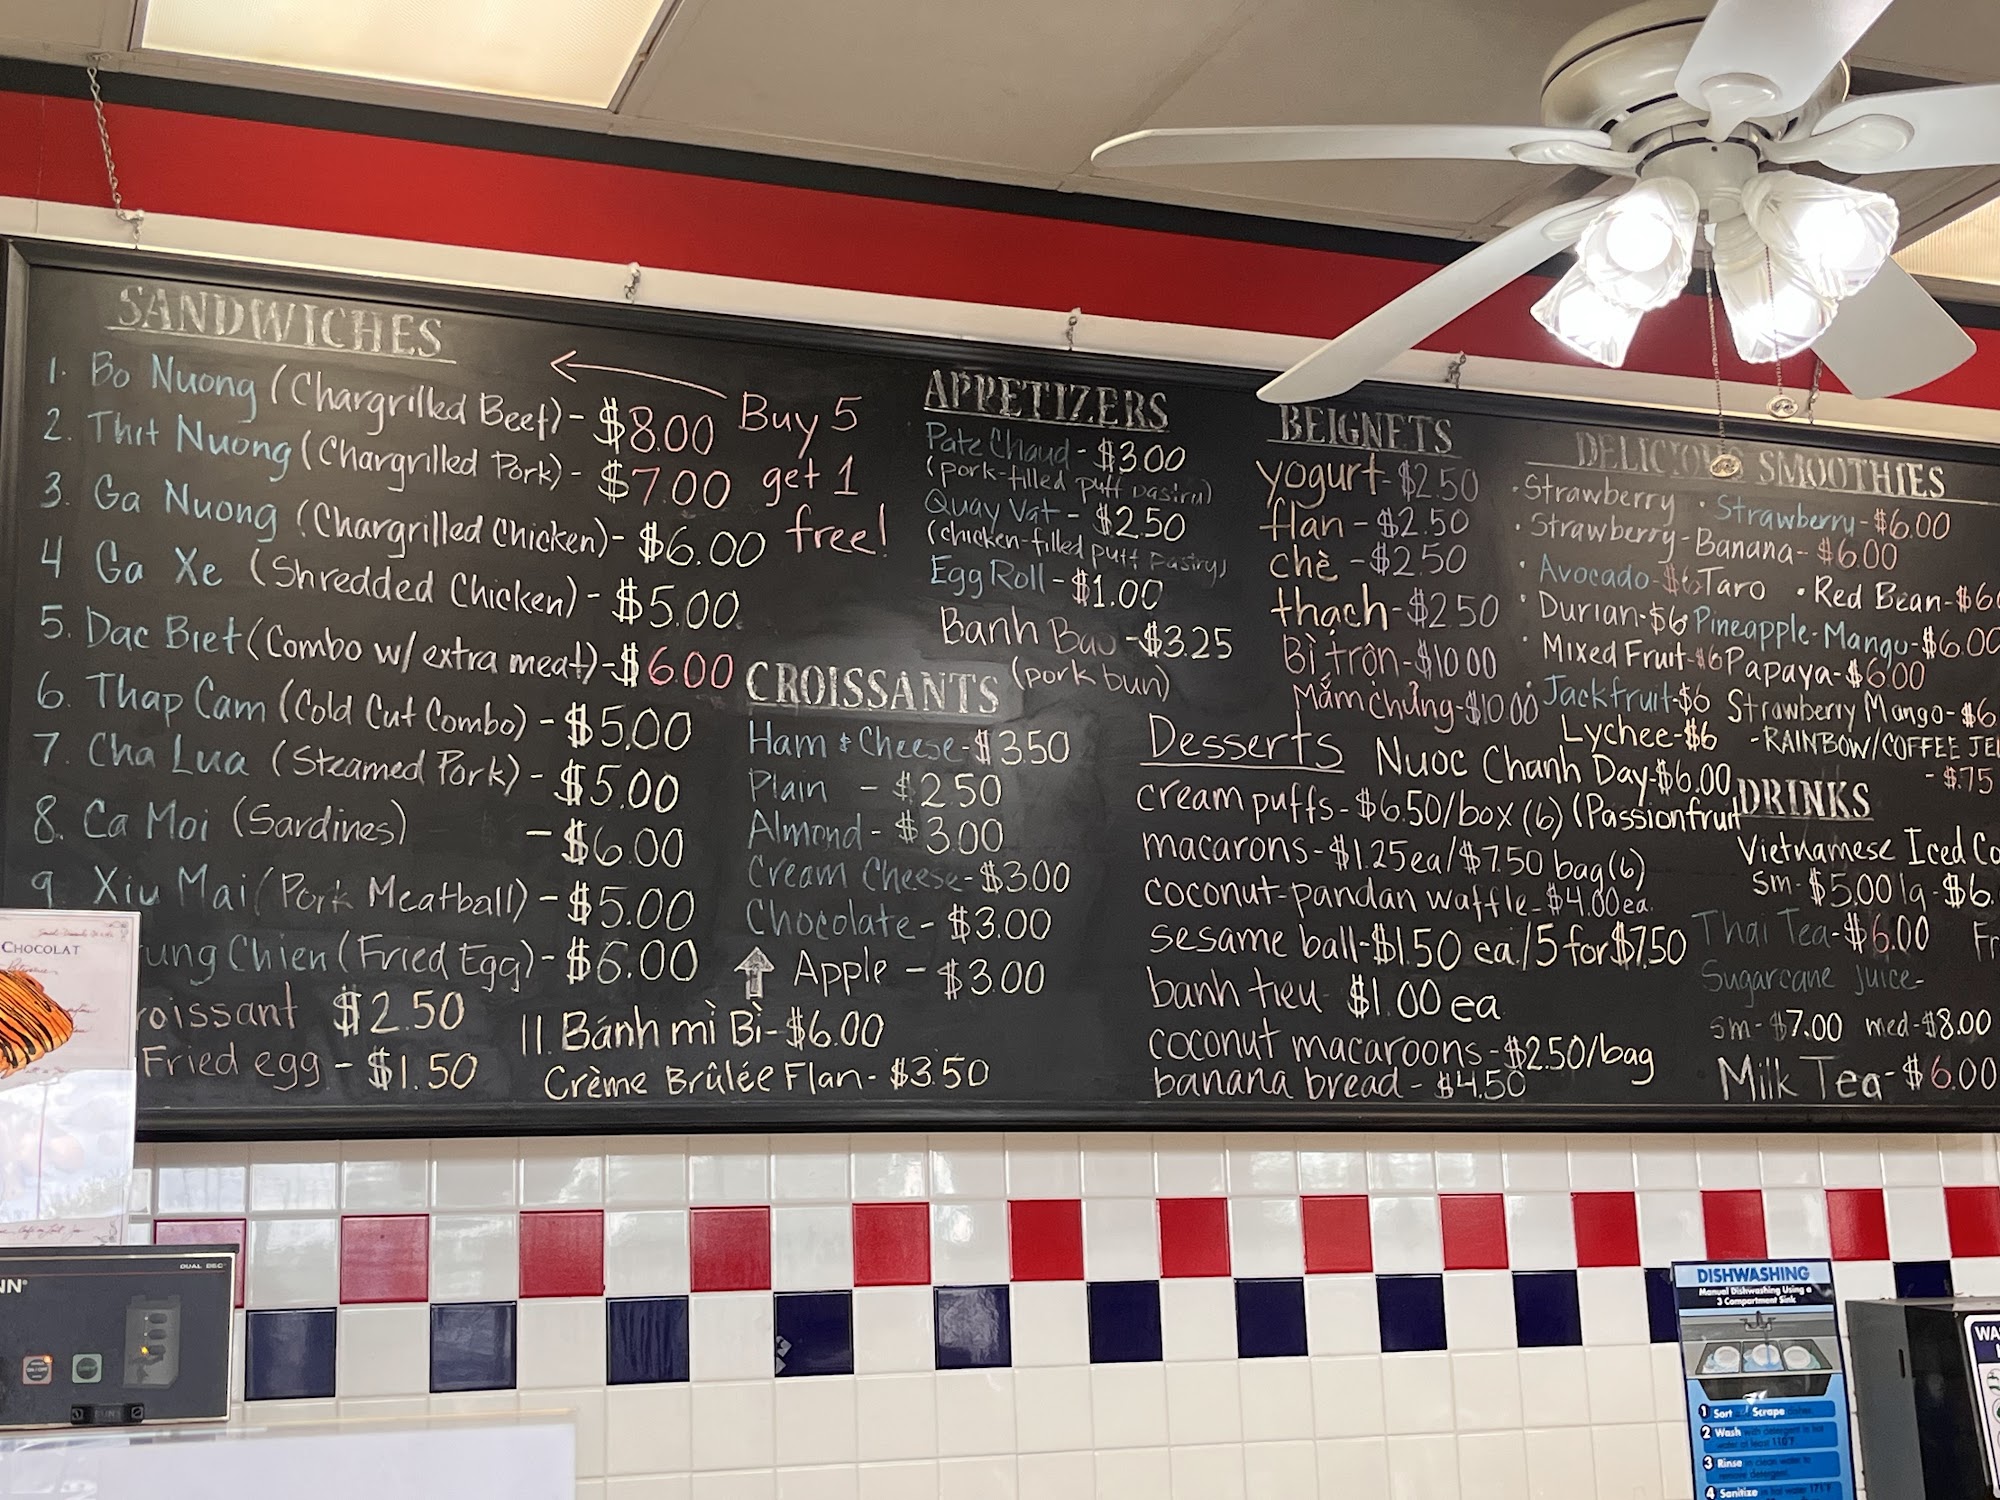 SANDWICHES
1. Bo Nuong (Chargrilled Beef) - $8.00
2. Thit Nuong (Chargrilled Pork) - $7.00
3. Ga Nuong (Chargrilled Chicken) - $6.00
4 Ga Xe (Shredded Chicken) - $5.00
5. Dac Biet (Combo w/ extra meat) - $6.00
6. Thap Cam (Cold Cut Combo) - $5.00
7. Cha Lua (Steamed Pork) - $5.00
8. Ca Moi (Sardines) - $6.00
9 Xiu Mai (Pork Meatball) - $5.00
ung Chien (Fried Egg) - $6.00
roissant $2.50
Fried egg - $1.50
11. Bánh mì Bì - $6.00
Crème Brûlée Flan - $3.50
Buy 5
get 1
free!
APPETIZERS
Pate Chaud - $3.00
(pork-filled puff pastry)
Quay Vat - $2.50
(chicken-filled puff pastry)
Egg Roll - $1.00
Banh Bao - $3.25
(pork bun)
CROISSANTS
Ham & Cheese - $3.50
Plain - $2.50
Almond - $3.00
Cream Cheese - $3.00
Chocolate - $3.00
Apple - $3.00
BEIGNETS
yogurt - $2.50
flan - $2.50
chè - $2.50
thạch - $2.50
Bì trộn - $10.00
Mắm chưng - $10.00
Desserts
cream puffs - $6.50/box (6)
macarons - $1.25ea/$7.50 bag (6)
coconut-pandan waffle - $4.00ea.
sesame ball - $1.50 ea./5 for $7.50
banh tieu $1.00 ea
coconut macaroons - $2.50/bag
banana bread - $4.50
DELICIOUS SMOOTHIES
• Strawberry • Strawberry - $6.00
• Strawberry-Banana - $6.00
• Avocado - $6 Taro • Red Bean - $6
• Durian - $6 Pineapple-Mango - $6.00
• Mixed Fruit - $6 Papaya - $6.00
• Jackfruit - $6 Strawberry Mango - $6
Lychee - $6 - RAINBOW/COFFEE JE
- $.75
Nuoc Chanh Day - $6.00
(Passionfruit
DRINKS
Vietnamese Iced Co
sm - $5.00 lg - $6.
Thai Tea - $6.00 Fr
Sugarcane Juice -
sm - $7.00 med - $8.00
Milk Tea - $6.00
CHOCOLAT
NN®
DUAL DBC
DISHWASHING
Manual Dishwashing Using a
3 Compartment Sink
1 Sort Scrape
2 Wash
3 Rinse
4 Sanitize
WA